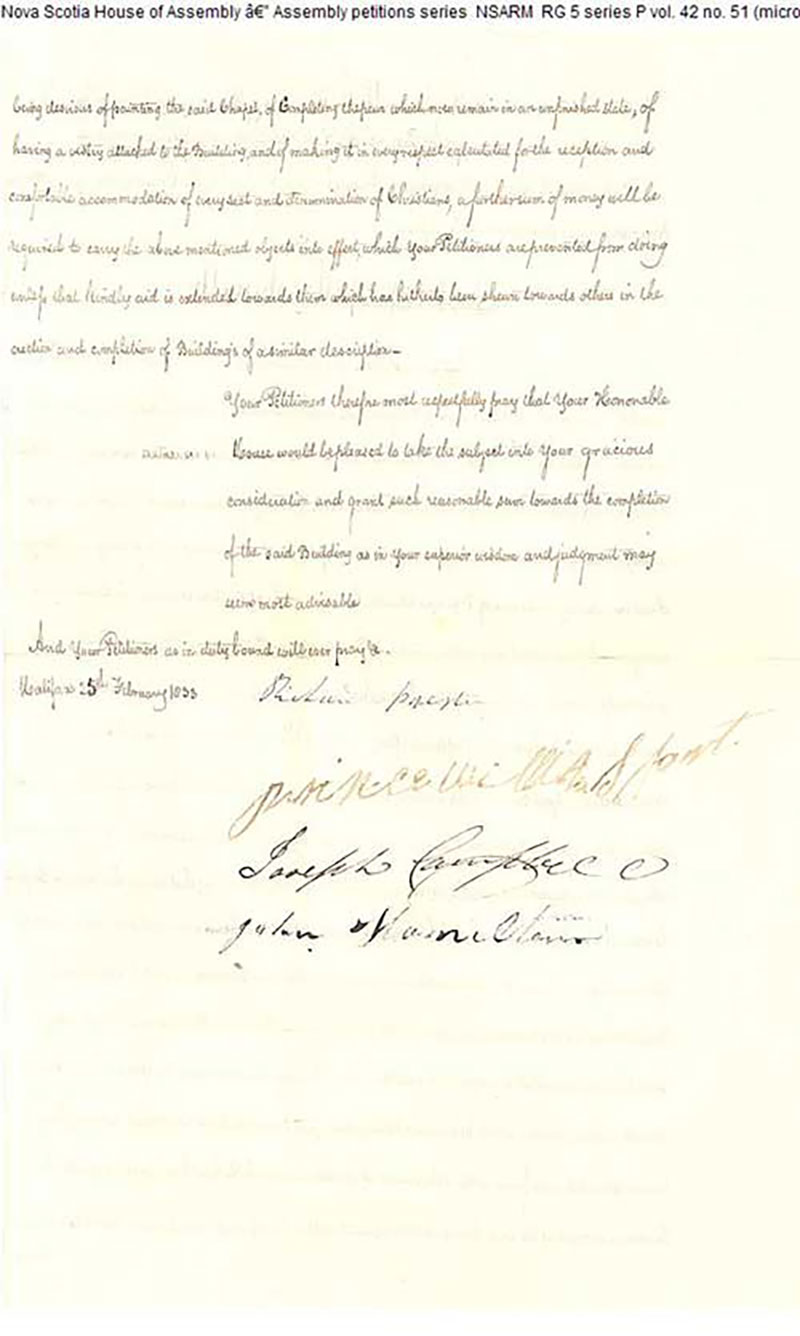 Nova Scotia House of Assembly â€" Assembly petitions series NSARM RG 5 series P vol. 42 no. 51 (micro
being desirous of painting the said Chapel, of Completing the pews which now remain in an unfinished state, of
having a vestry attached to the Building, and of making it in every respect calculated for the reception and
comfortable accommodation of every sect and denomination of Christians, a further sum of money will be
required to carry the above mentioned objects into effect, which Your Petitioners are prevented from doing
unless that kindly aid is extended towards them which has hitherto been shewn towards others in the
erection and completion of Building's of a similar description—
Your Petitioners therefore most respectfully pray that Your Honorable
House would be pleased to take the subject into Your gracious
consideration and grant such reasonable sum towards the completion
of the said Building as in Your superior wisdom and judgment may
seem most adviseable
And Your Petitioners as in duty bound will ever pray &.
Halifax 25th February 1833
Richard preston
prince william
Joseph Campbell
John Hamilton